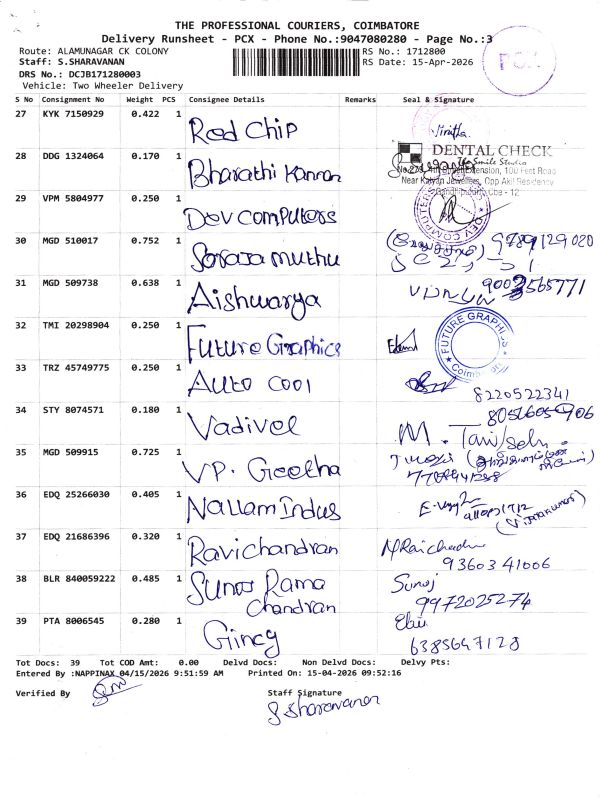 THE PROFESSIONAL COURIERS, COIMBATORE
Delivery Runsheet - PCX - Phone No.:9047080280 - Page No.:3
Route: ALAMUNAGAR CK COLONY
RS No.: 1712800
PCX
Staff: S.SHARAVANAN
RS Date: 15-Apr-2026
DRS No.: DCJB171280003
Vehicle: Two Wheeler Delivery
S No Consignment No Weight PCS Consignee Details Remarks Seal & Signature
27 KYK 7150929 0.422 1 Red Chip
28 DDG 1324064 0.170 1 Bharathi Kannan
DENTAL CHECK
The Smile Studio
Extension, 100 Feet Road
Near Kalyan Jewellers, Opp Akil Residency
Gandhipuram, Cbe - 12
29 VPM 5804977 0.250 1 Dev computers
DEV COMPUTERS
30 MGD 510017 0.752 1 9789129020
31 MGD 509738 0.638 1 Aishwarya 9003565771
32 TMI 20298904 0.250 1 Future Graphics
FUTURE GRAPHICS
33 TRZ 45749775 0.250 1 Auto cool
8220522341
34 STY 8074571 0.180 1 Vadivel
M.
35 MGD 509915 0.725 1 VP. Geetha
36 EDQ 25266030 0.405 1 Nallam Indus
37 EDQ 21686396 0.320 1 Ravichandran
93603 41006
38 BLR 840059222 0.485 1 Rama Chandran Suroj
9972025274
39 PTA 8006545 0.280 1 Gincy
6385647128
Tot Docs: 39 Tot COD Amt: 0.00 Delvd Docs: Non Delvd Docs: Delvy Pts:
Entered By :NAPPINAX 04/15/2026 9:51:59 AM Printed On: 15-04-2026 09:52:16
Verified By Staff Signature
S Sharavanan